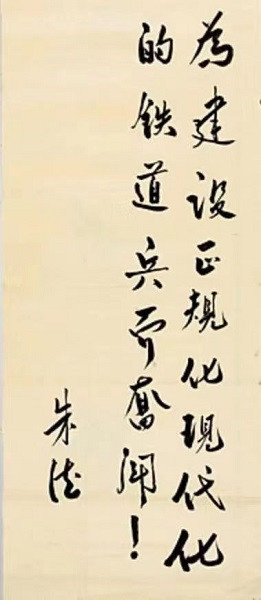 為建设正规化现代化
的铁道兵而奮闘！
朱德